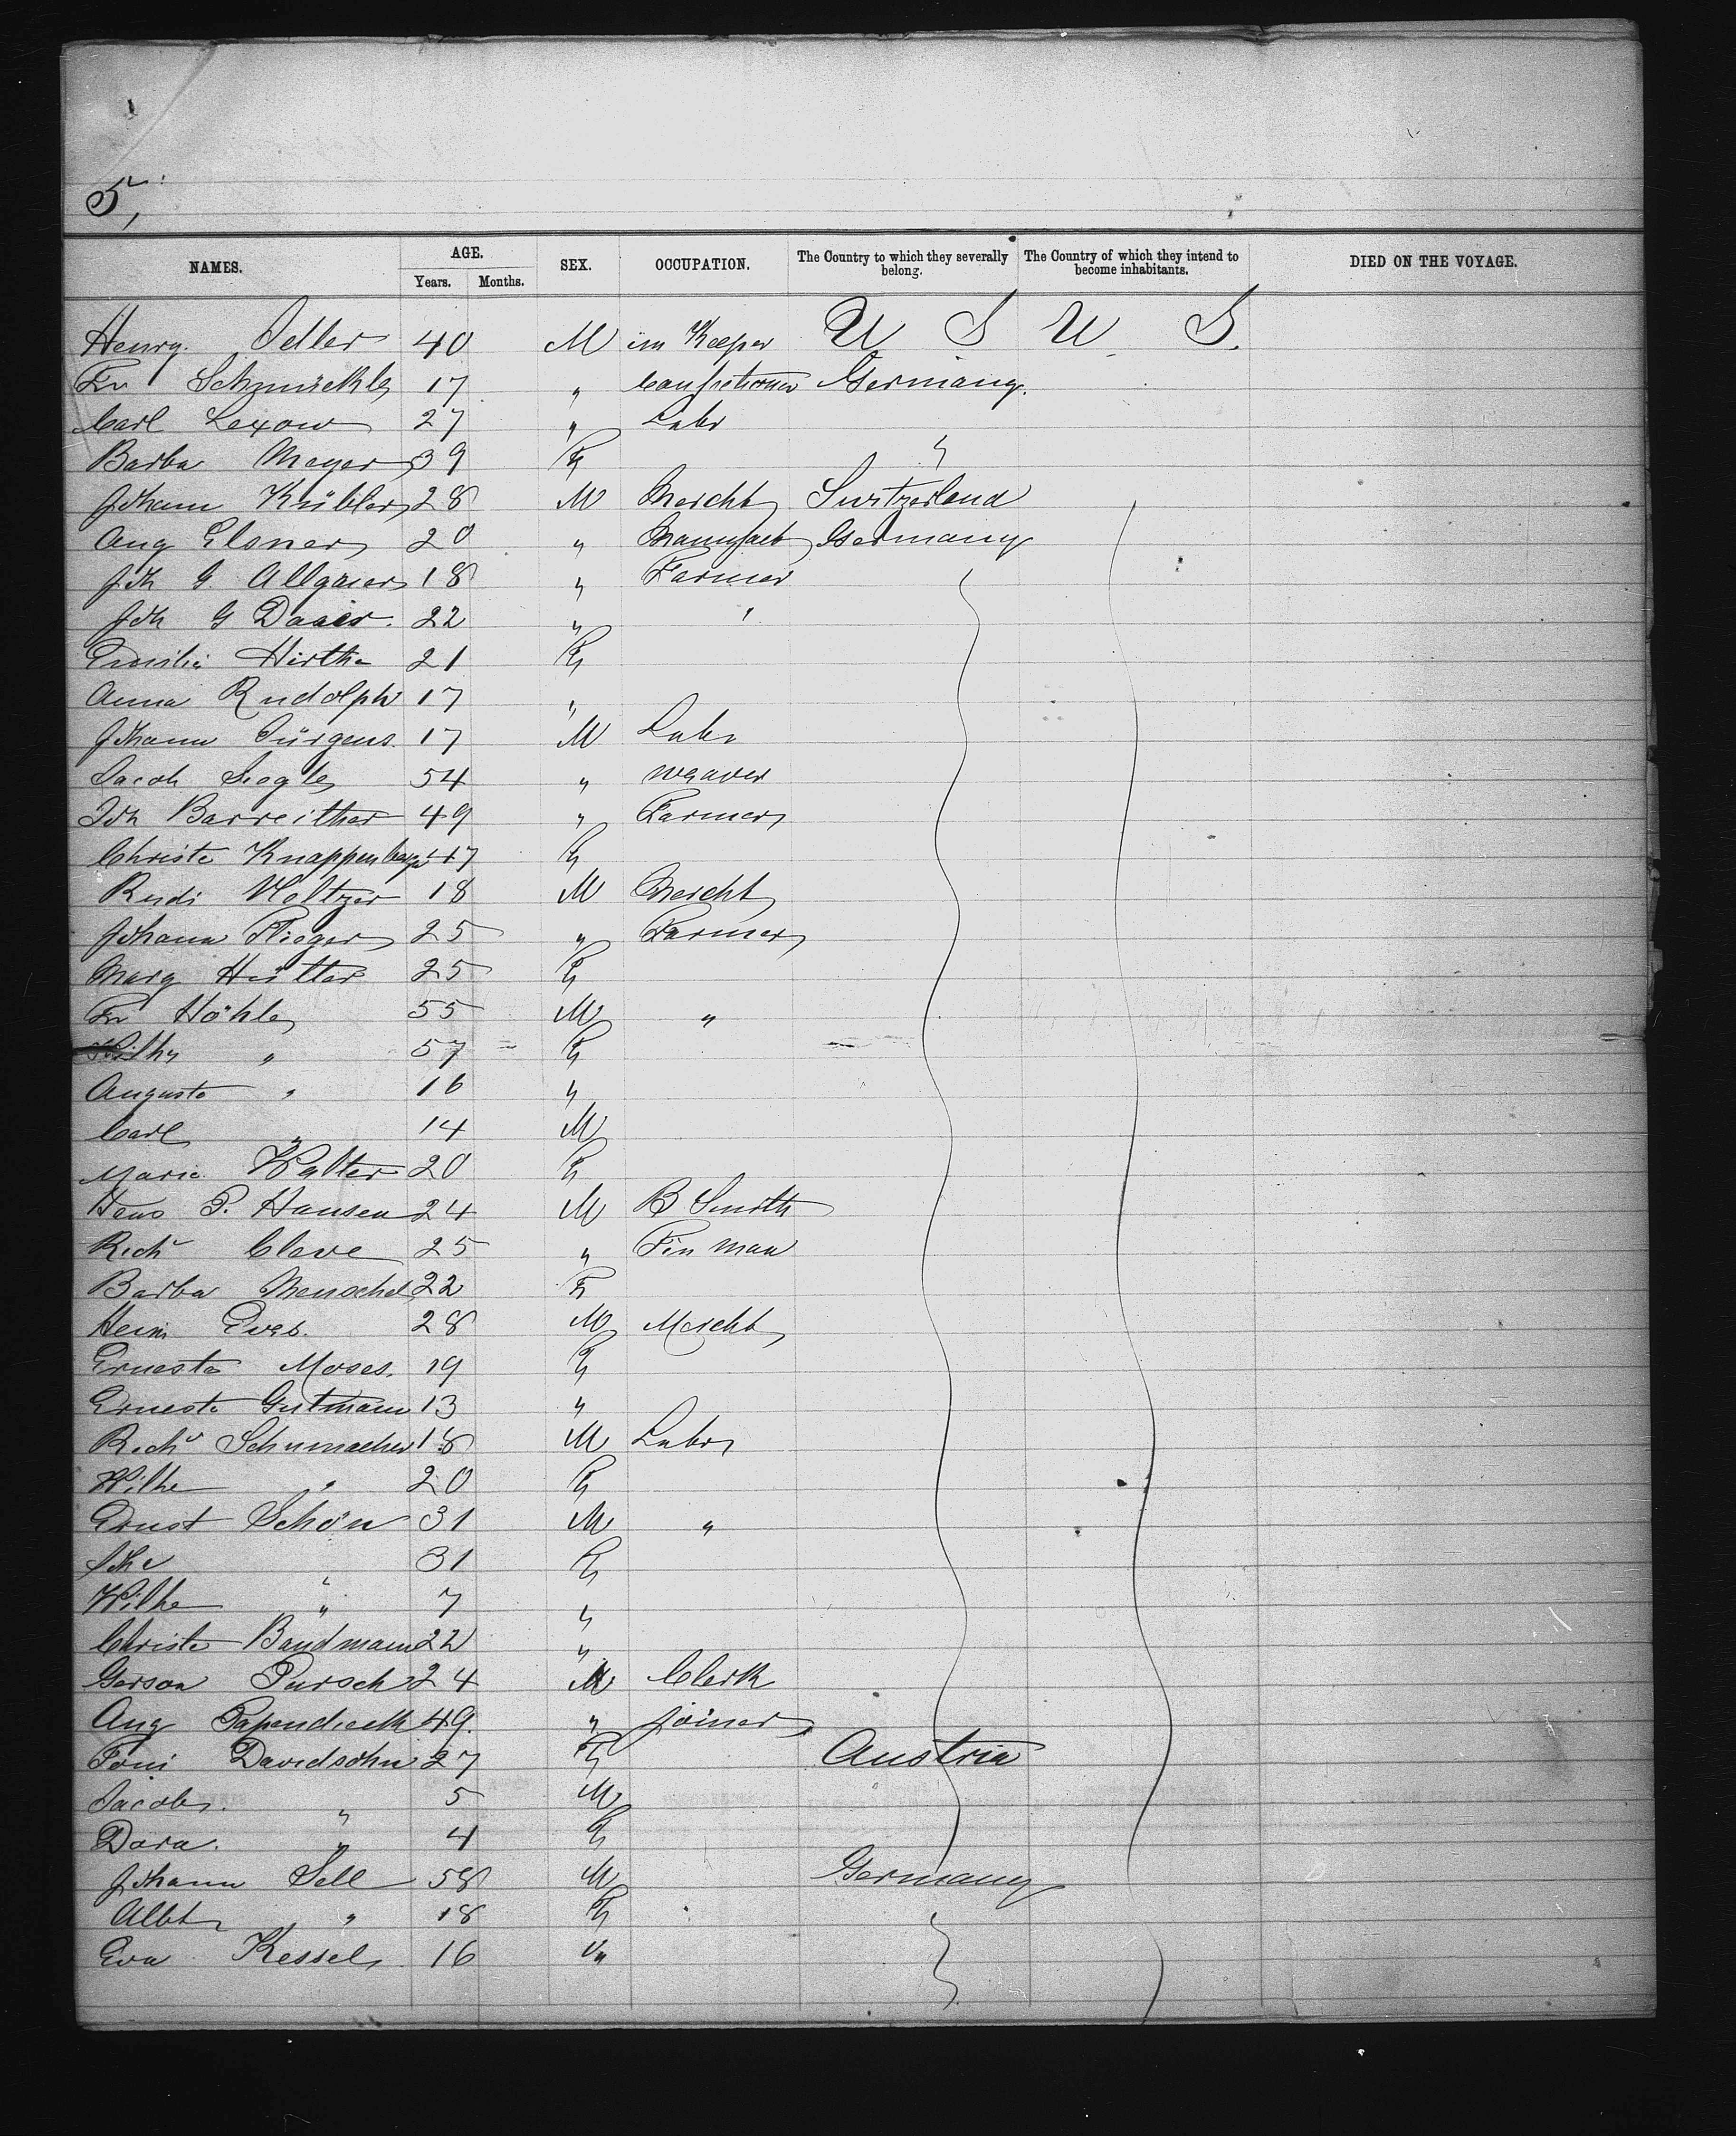 5,
NAMES. AGE. SEX. OCCUPATION. The Country to which they severally belong. The Country of which they intend to become inhabitants. DIED ON THE VOYAGE.
Years. Months.
Henry Seller 40 M inn Keeper U S U S.
Fr Schmückle 17 " Confectioner Germany.
Carl Lexow 27 " Labr
Barba Meyer 39 F "
Johann Kübler 28 M Mercht Switzerland
Aug Elsner 20 " Manufact Germany
Joh G Allgaier 18 " Farmer
Joh G Daaer. 22 " "
Emilie Hirthe 21 F
Anna Rudolph 17 "
Johann Jürgens. 17 M Labr
Jacob Siegle 54 " weaver
Joh Barreither 49 " Farmer
Christe Knappenberger 47 F
Rudi Holtzer 18 M Mercht
Johann Plieger 25 " Farmer
Marg Hütter 25 F
Fr Höhle 55 M "
Wilhe " 57 F
Auguste " 16 "
Carl " 14 M
Marie Walter 20 F
Hans P. Hansen 24 M B Smith
Richd Cleve 25 " Tin man
Barba Menschel 22 F
Heini Evers. 28 M Mercht
Ernesta Moses. 19 F
Ernesta Gutmann 13 "
Richd Schumacher 18 M Labr
Wilhe " 20 F
Ernst Schön 31 M "
Johe " 31 F
Wilhe " 7 "
Christe Bandmann 22 "
Gerson Pursch 24 M Clerk
Aug Papendieck 49. " Joiner
Toni Davidsohn 27 F Austria
Jacob. " 5 M
Dora. " 4 F
Johann Sell 58 M Germany
Albt " 18 F
Eva Kessel 16 "